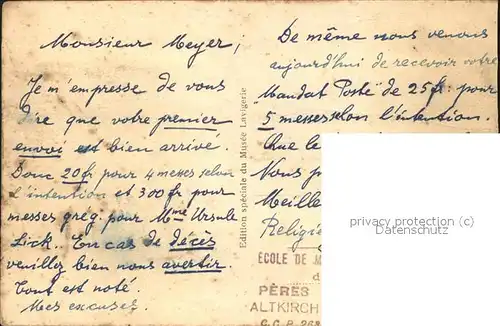 Monsieur Meyer;
Je m'empresse de vous
dire que votre premier
envoi est bien arrivé.
Donc 20 fr pour 4 messes selon
l'intention et 300 fr pour
messes greg. pour Mme Ursule
Lick. En cas de décès
veuillez bien nous avertir.
Tout est noté.
Mes excuses.
Edition spéciale du Musée Lavigerie
De même nous venons
aujourd'hui de recevoir votre
"Mandat Poste" de 25 fr. pour
5 messes selon l'intention.
Que le
Nous p
Meille
Religie
ECOLE DE M
d
PÈRES
ALTKIRCH
C.C.P. 268
privacy protection (c)
Datenschutz